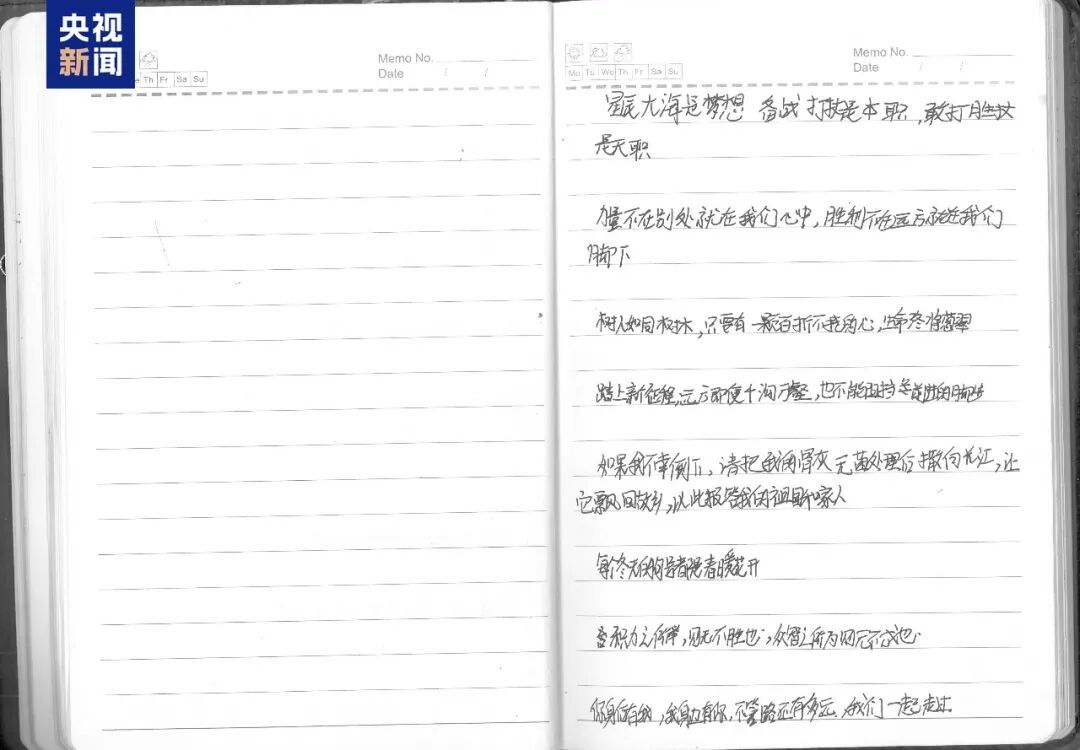 央视
新闻
Th Fr Sa Su
Memo No.
Date / /
Mo Tu We Th Fr Sa Su
Memo No.
Date / /
星辰大海是梦想 备战打技是本职,敢打胜仗
是天职
力量不在别处就在我们心中,胜利不在远方就在我们
脚下
树人如同树木,只要有一颗百折不挠的心,生命终将葱翠
踏上新征程,远方即便千沟万壑,也不能阻挡 前进的脚步
如果我不幸倒下,请把我的骨灰无菌处理后撒向长江,让
它飘回故乡,以此报答我的祖国和家人
每个冬天的句号都是春暖花开
积力之所举,则无不胜也;众智之所为,则无不成也
你身后有我,我身边有你,不管路还有多远,我们一起走过